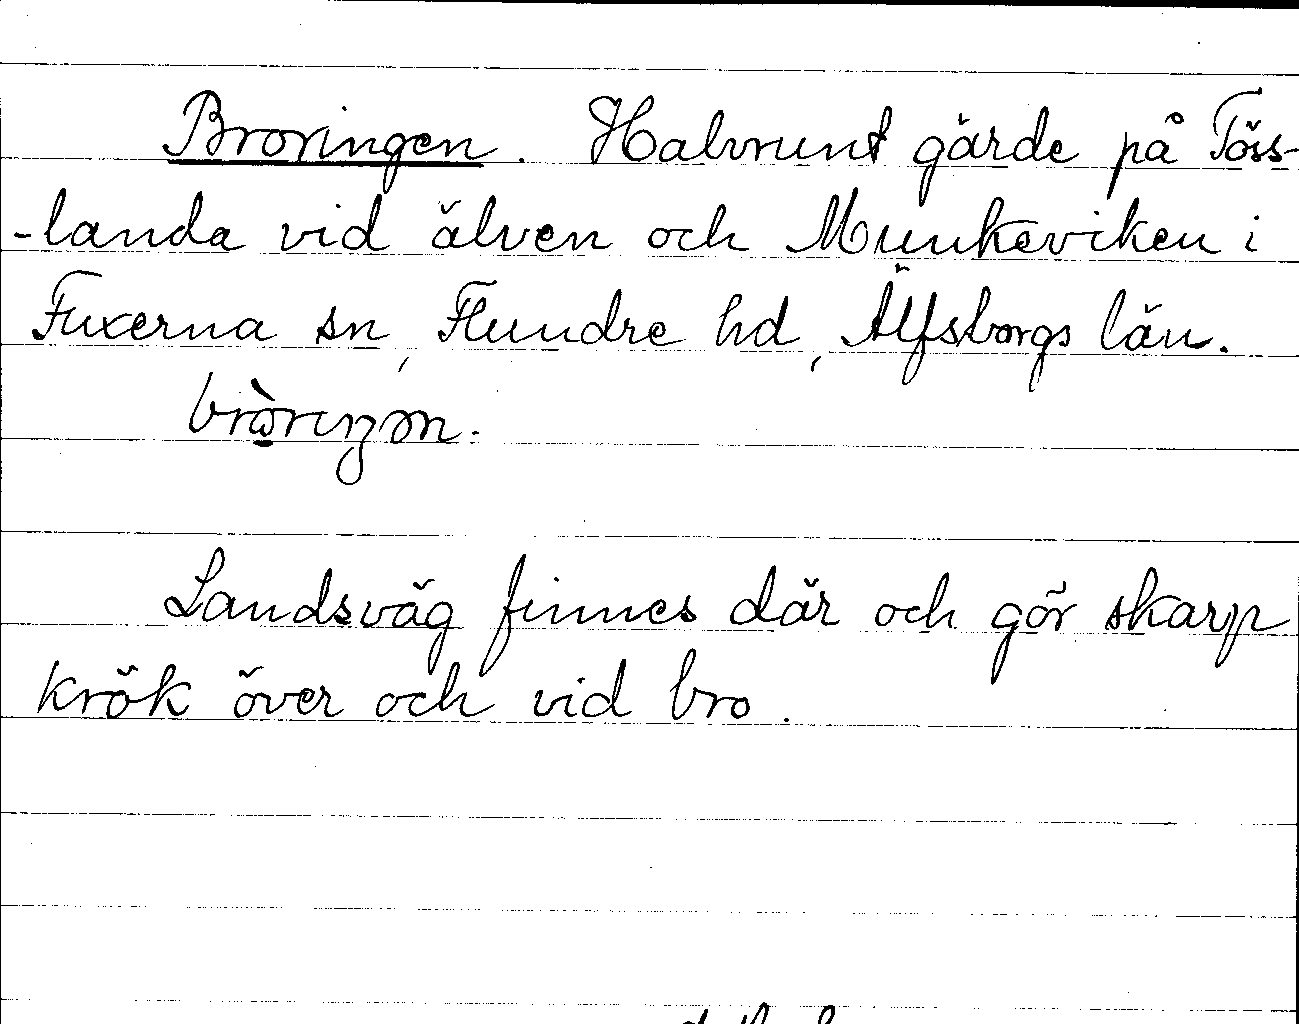 Broringen. Halvrunt gärde på Töss-
-landa vid älven och Munkeviken i
Fuxerna sn, Flundre hd, Älfsborgs län.
Landsväg finnes där och gör skarp
krök över och vid bro.